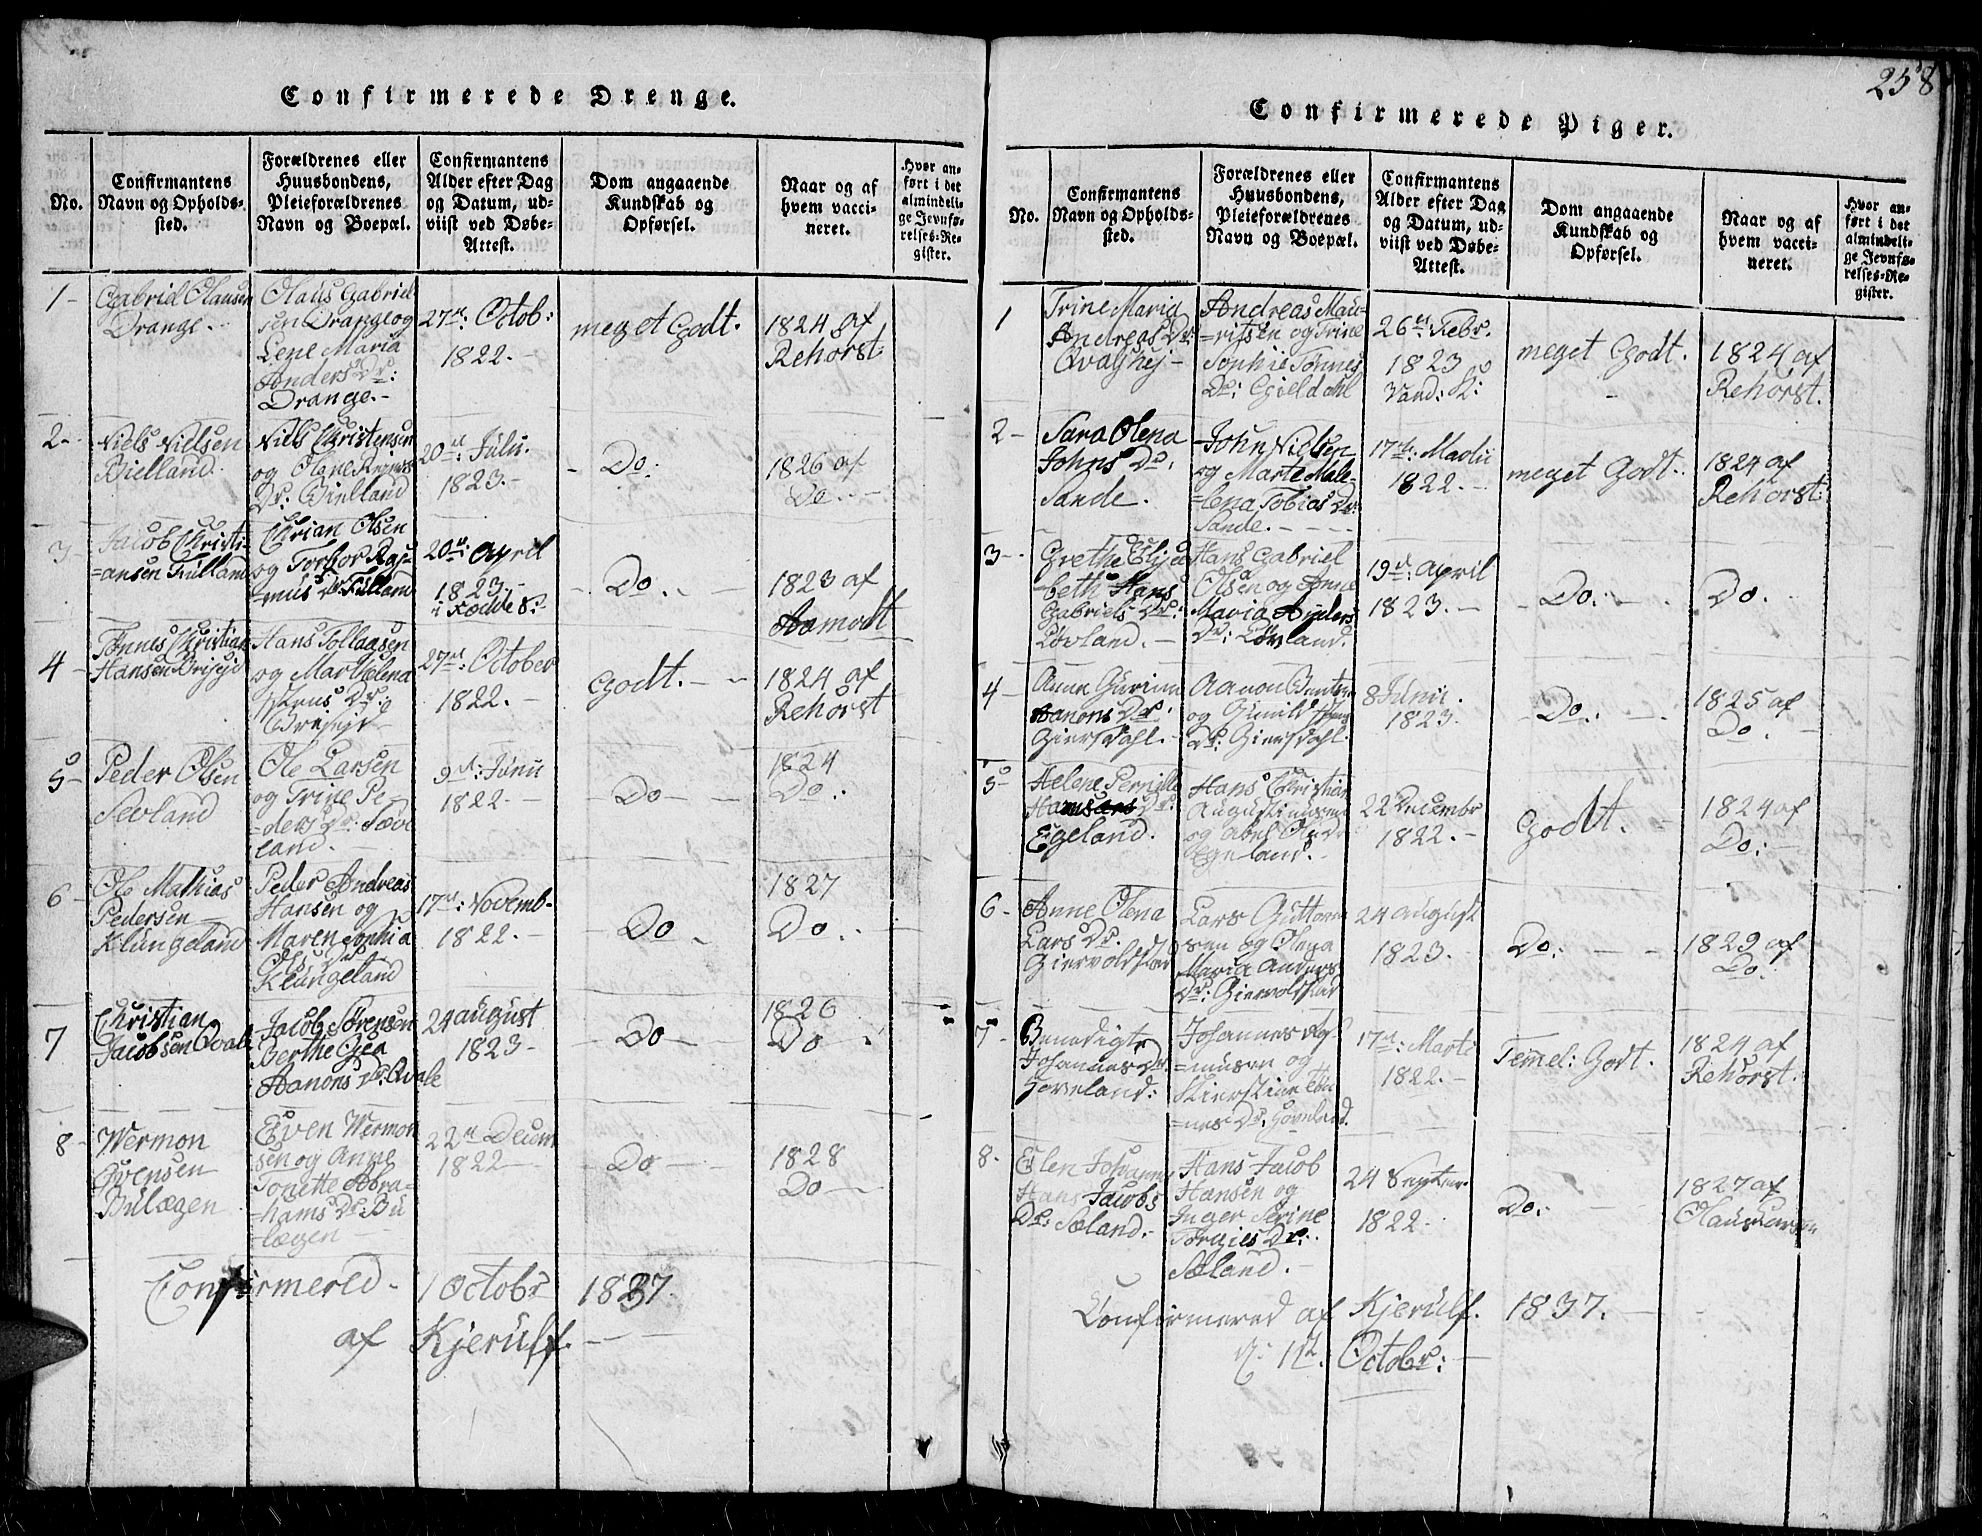 258
Confirmerede Drenge.
No.
Confirmantens
Navn og Opholds-
sted.
Forældrenes eller
Huusbondens,
Pleieforældrenes
Navn og Boepæl.
Confirmantens
Alder efter Dag
og Datum, ud-
viist ved Døbe-
Attest.
Dom angaaende
Kundskab og
Opførsel.
Naar og af
hvem vacci-
neret.
Hvor an-
ført i det
almindeli-
ge Jevnfø-
relses-Re-
gister.
1-
Gabriel Olausen
Drange.-
Olaus Gabriel
sen Drange og
Lene Maria
Anders Dr:
Drange.-
27de: Octob:
1822.-
meget Godt.
1824 af
Rehorst:
2-
Niels Nielsen
Bielland.
Niels Christensen
og Olene
Dr. Bielland
20de: Julii
1823.-
- Do:
1826 af
Do. -
3-
Jacob Christi-
=ansen Fulland
Chrian Olsen
og Torbor Ras-
mus Dr. Fulland
20de: April
1823.-
- Do. -
1823 af
Aamodt
4-
Tønnes Christian
Hansen
Hans Tollagsen
og Marthelena
Dr.
27de: October
1822.-
Godt. -
1824 af
Rehorst
5-
Peder Olsen
Sevland
Ole Larsen
og Trine Pe-
ders Dr. Sæv
land.
9de: Junii
1822.-
Do -
1824
Do.
6-
Ole Mathias
Pedersen -
Klungeland
Peder Andreas
Hansen og
Maren Sophia
Ols Dr
Klungeland
17de: Novemb-
1822.-
Do -
1827
Do. -
7
Christian
Jacobsen Qvale
Jacob Sørensen
Berthe Gea
Aanons Dr: Qvale
24 August
1823 -
- Do -
1826
Do
8-
Wermon
Evensen
Bulægen
Even Wermon
sen og Anne
Tonette Abra-
=hams Dr Bu
lægen -
22de Decem
1822 -
- Do -
1828
Do -
Confirmered - 1 Octobr 1837.
af Kjerulf. -
Confirmerede Piger.
No.
Confirmantens
Navn og Opholds-
sted.
Forældrenes eller
Huusbondens,
Pleieforældrenes
Navn og Boepæl.
Confirmantens
Alder efter Dag
og Datum, ud-
viist ved Døbe-
Attest.
Dom angaaende
Kundskab og
Opførsel.
Naar og af
hvem vacci-
neret.
Hvor an-
ført i det
almindeli-
ge Jevnfø-
relses-Re-
gister.
1
Trine Maria
Andreas Dr.
Qvalshej -
Andreas Mau-
=ritsen og Trine
Sophie Tønnes
Dr: Gieldahl
26de: Febr.
1823
meget Godt.
1824 af
Rehorst.
2-
Sara Olena
Johns Dr.
Sande.
John Nielsen
og Marte Male-
=lena Tobias Dr.
Sande. -
17de: Martii
1822. -
meget Godt.
1824 af
Rehorst:
3-
Grethe Elisa
beth Hans
Gabriels Dr:
Løvland. -
Hans Gabriel
Olsen og Anne
Maria Anders
Dr: Løvland.
19de: April
1823. -
- Do: -
Do.
4-
Anne Gurine
Aanons Dr.
Giersdahl.-
Aanon Bentsen
og Gunild
Dr: Giersdahl.
8 Junii.
1823.
- Do: -
1825 af
Do. -
5-
Helene Pernille
Hans Dr.
Egeland.
Hans Christian
Augustinusen
og Abel
Egeland.
22 Decembr
1822. -
Godt. -
1824 af
Do: -
6-
Anne Olena
Lars Dr.
Giervoldstad
Lars Guttorm
sen og Olena
Maria Anders
Dr: Giervoldstad
24 August
1823.
Do: -
1829 af
Do.
7-
Benedigte
Johannes Dr.
Hoveland:
Johannes
=musen og
Dr. Hoveland.
17de: Marti
1822. -
Temel: Godt.
1824 af
Rehorst.
8-
Elen Johanne
Hans Jacobs
Dr: Sæland.-
Hans Jacob
Hansen og
Inger Serine
Torgies Dr:
Sæland. -
24 Septem
1822. -
Do. -
1827 af
Confirmered af Kjerulf. 1837. -
1ste. Octobr: -